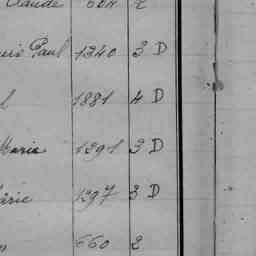 Claude 604 2
uis Paul 1340 3 D
l 1881 4 D
Marie 1391 3 D
Marie 1397 3 D
660 2